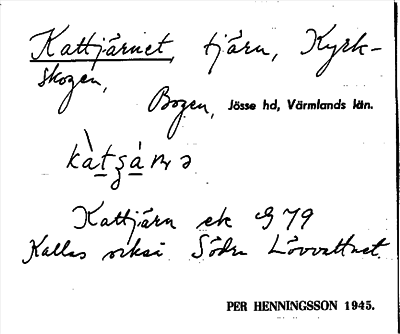 Kattjärnet, tjärn, Kyrk-
skogen,
Bogen, Jösse hd, Värmlands län.
Kattjärn ek 79
Kallas också Södra Lövvattnet.
PER HENNINGSSON 1945.